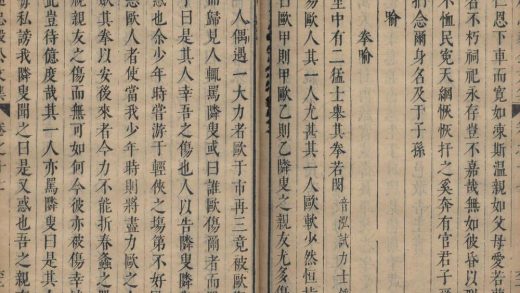 仁恩下車而寬如湅斯溫親如父母愛若
者若不朽祠祀永存豈不嘉哉無如彼昏以
不恤民寃天網恢恢扞之奚奔有官君子
念爾身名及于子孫
喻
拳喻
里中有二猛士舉其拳若閔音泓試力士
易歐人其一人尤甚其一人歐軟少然恒
曰歐甲則甲歐乙則乙隣叟之親友尤多傷
人偶遇一大力者歐于市再三竟被歐
而歸見人輒罵隣叟或曰誰歐傷爾者而
曰是其人幸吾之傷也人以告隣叟
惑也余少年時嘗游于輕俠之塲第不好
歐人者使當我少年時則將盡力歐之
其拳以安後來者今力不能折春螽之
視親友之傷而無可如何今彼亦被傷幸
此豈待億度哉其一人亦罵隣叟曰是其
每私謗我隣叟聞之曰是又惑也吾之親